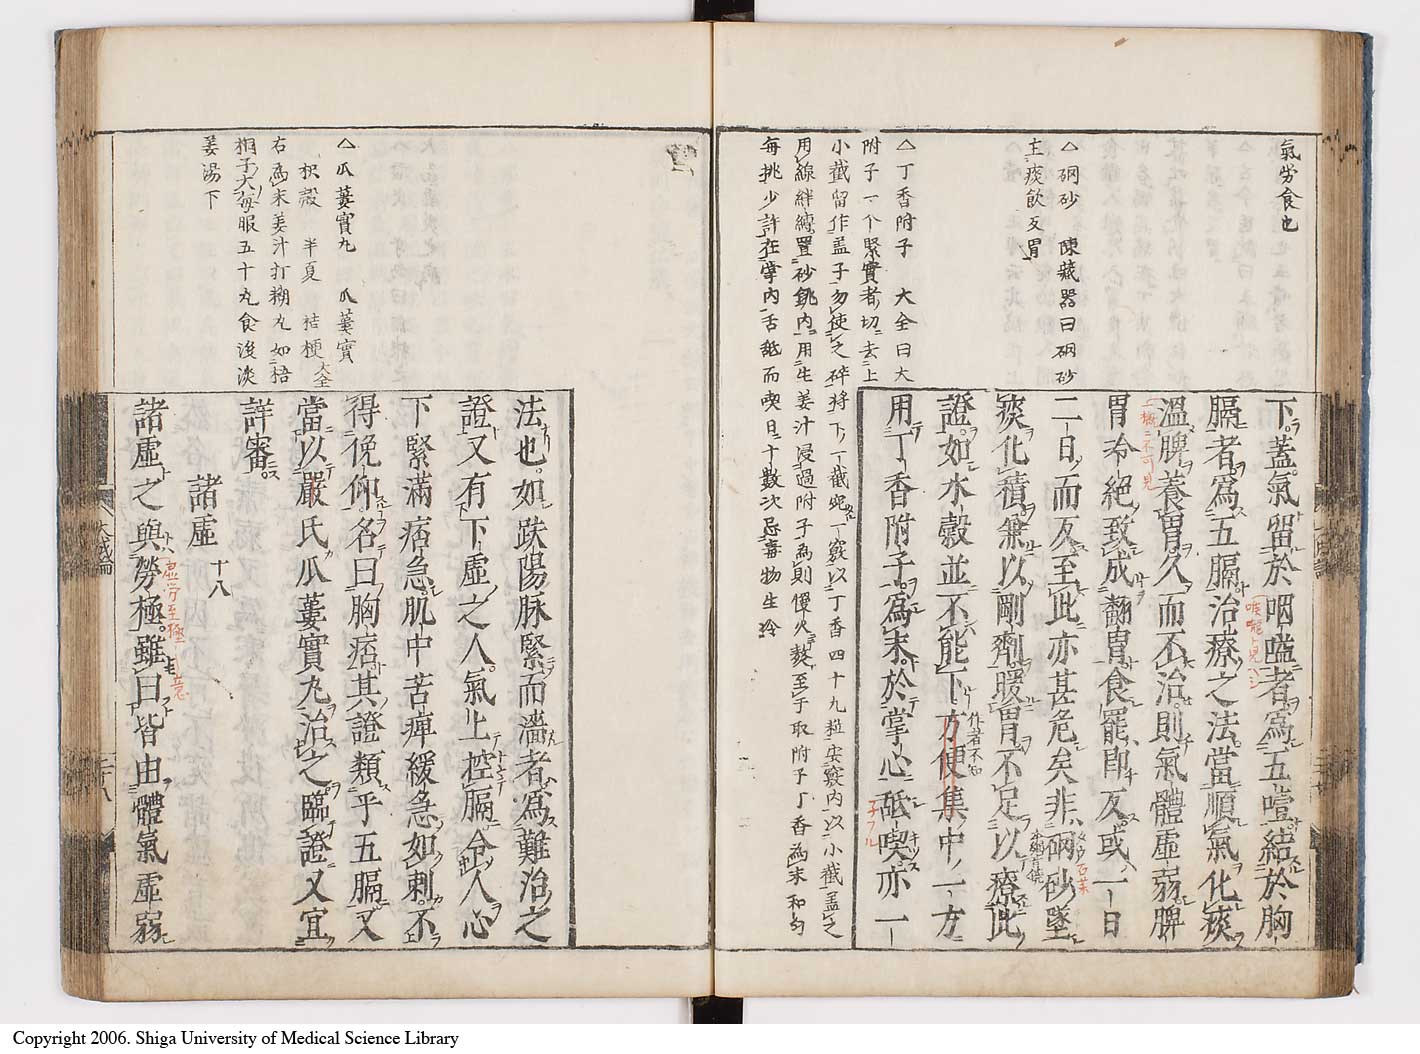 氣勞食也
△硇砂 陳藏器曰硇砂
主痰飲反胃
△丁香附子 大全曰大
附子一个緊實者切去上
小截留作蓋子勿使之碎將下一截剜一竅以丁香四十九粒安竅內以小截蓋之
用線絆縛置砂銚內用生姜汁浸過附子為則慢火熬至干取附子丁香為末和勻
每挑少許在掌內舌舐而喫日十數次忌毒物生冷
下蓋氣留於咽嗌者爲五噎結於胸
膈者爲五膈治療之法當順氣化痰
溫脾養胃久而不治則氣體虛弱脾
胃冷絕致成翻胃食罷即反或一日
二日而反至此亦甚危矣非硇砂墜
痰化積兼以剛劑暖胃不足以療此
證如水穀並不能下方便集中一方
用丁香附子爲末於掌心舐喫亦一
△瓜蔞實丸 瓜蔞實
枳殼 半夏 桔梗 大全
右爲末姜汁打糊丸如梧
桐子大每服五十丸食後淡
姜湯下
法也如趺陽脉緊而濇者爲難治之
證又有下虛之人氣上控膈令人心
下緊滿痞急肌中苦痺緩急如刺不
得俛仰名曰胸痞其證類乎五膈又
當以嚴氏瓜蔞實丸治之臨證又宜
詳審
諸虛 十八
諸虛之與勞極雖曰皆由體氣虛弱
大成論
二十八
Copyright 2006. Shiga University of Medical Science Library